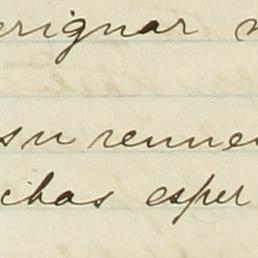 erignar n
su renne
chas esper